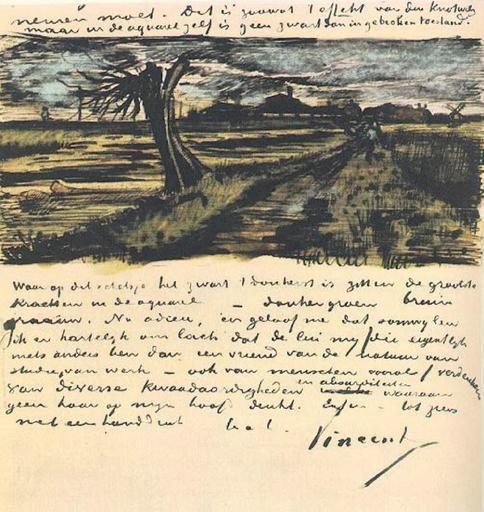 nemen moet. Dit is zoowat 't effekt van den Knotwilg
maar in de aquarel zelf is geen zwart dan in gebroken toestand.
Waar op dit schetsje het zwart 't donkerst is zitten de grootste
krachten in de aquarel – donkergroen bruin
graauw. Nu adieu, en geloof me dat somwylen
ik er hartelyk om lach dat de lui my die eigentlyk
niets anders ben dan een vriend van de natuur van
studie van werk – ook van menschen vooral verdenken
van diverse kwaadaardigheden en absurditeiten waaraan
geen haar op myn hoofd denkt. Enfin – tot ziens
met een handdruk
Vincent